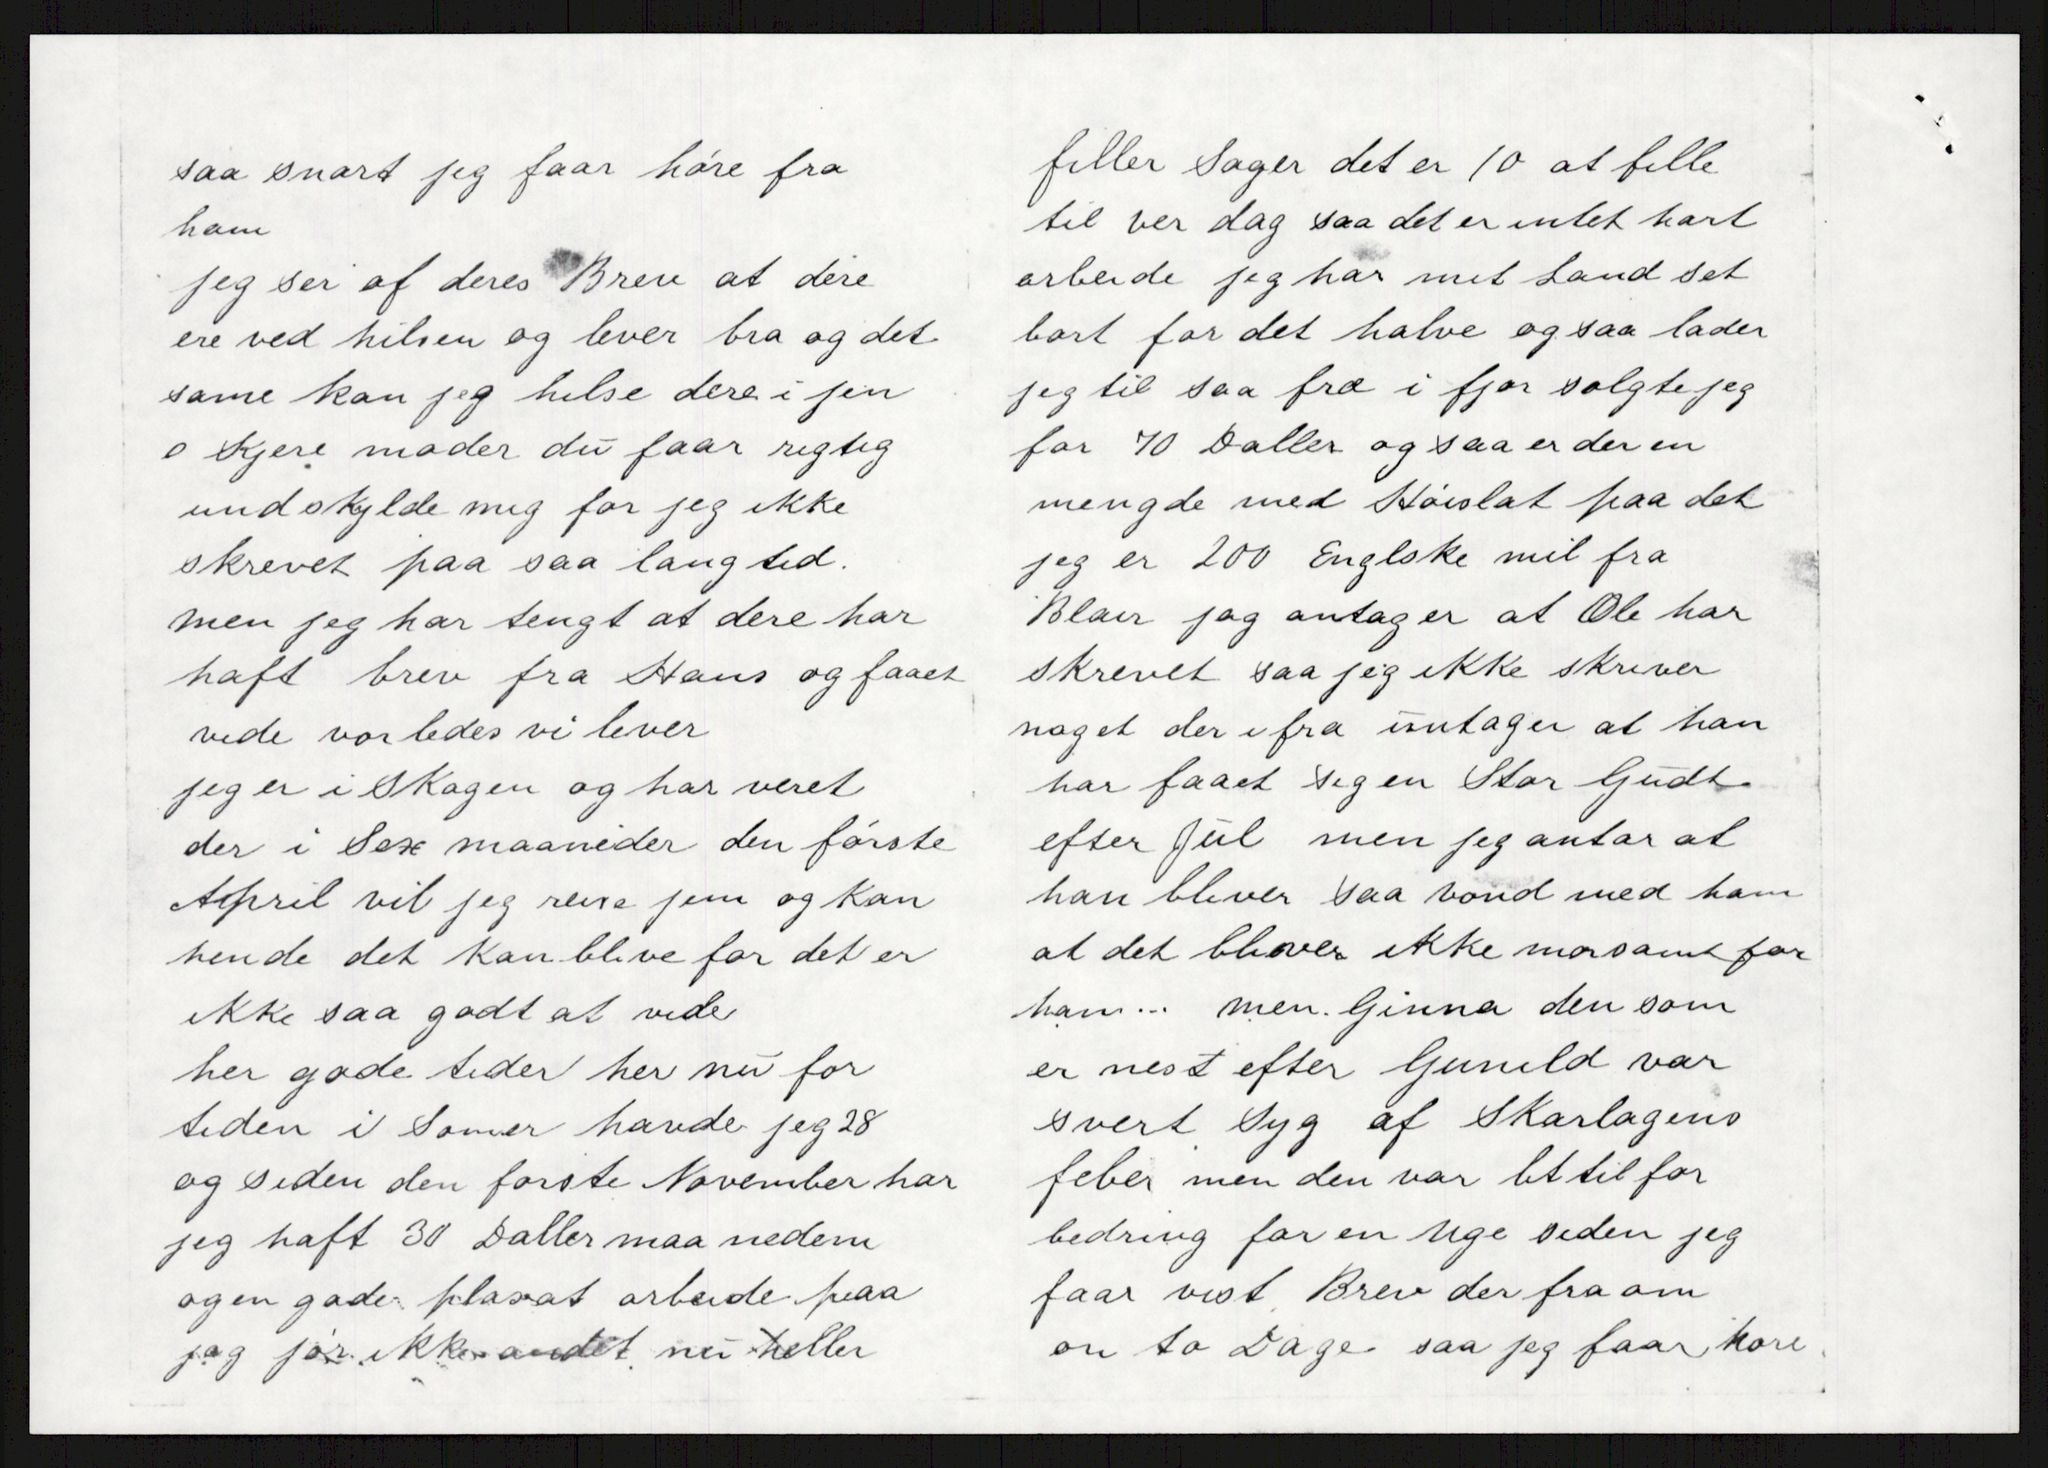 saa snart jeg faar høre fra
ham
jeg ser af deres Brev at dere
ere ved hilsen og lever bra og det
same kan jeg hilse dere i jen
o Kjere moder du faar rigtig
undskylde mig for jeg ikke
skrevet paa saa lang tid.
men jeg har tengt at dere har
haft brev fra Hans og faaet
vide vorledes vi lever
jeg er i Skogen og har veret
der i Sex maaneder den første
April vil jeg reise jem og kan
hende det kan blive for det er
ikke saa godt at vide
her gode tider her nu for
tiden i Somer havde jeg 28
og siden den forste November har
jeg haft 30 Daller maanedem
og en gode plas at arbeide paa
jag jør ikke andet nu heller
filler Sager det er 10 at fille
til ver dag saa det er intet hart
arbeide jeg har mit Land set
bort for det halve og saa lader
jeg til saa frø i fjor solgte jeg
for 70 Daller og saa er der en
mengde med Høislat paa det
jeg er 200 Englske mil fra
Blair jag antager at Ole har
skrevet saa jeg ikke skriver
noget der ifra untager at han
har faaet sig en Stor Gudt
efter Jul men jeg antar at
han bliver saa vond med ham
at det bliver ikke morsamt for
ham... men Ginna den som
er nest efter Gunild var
svert Syg af Skarlagens
feber men den var lit til for
bedring for en Uge siden jeg
faar vist Brev der fra om
on to Dage saa jeg faar hore